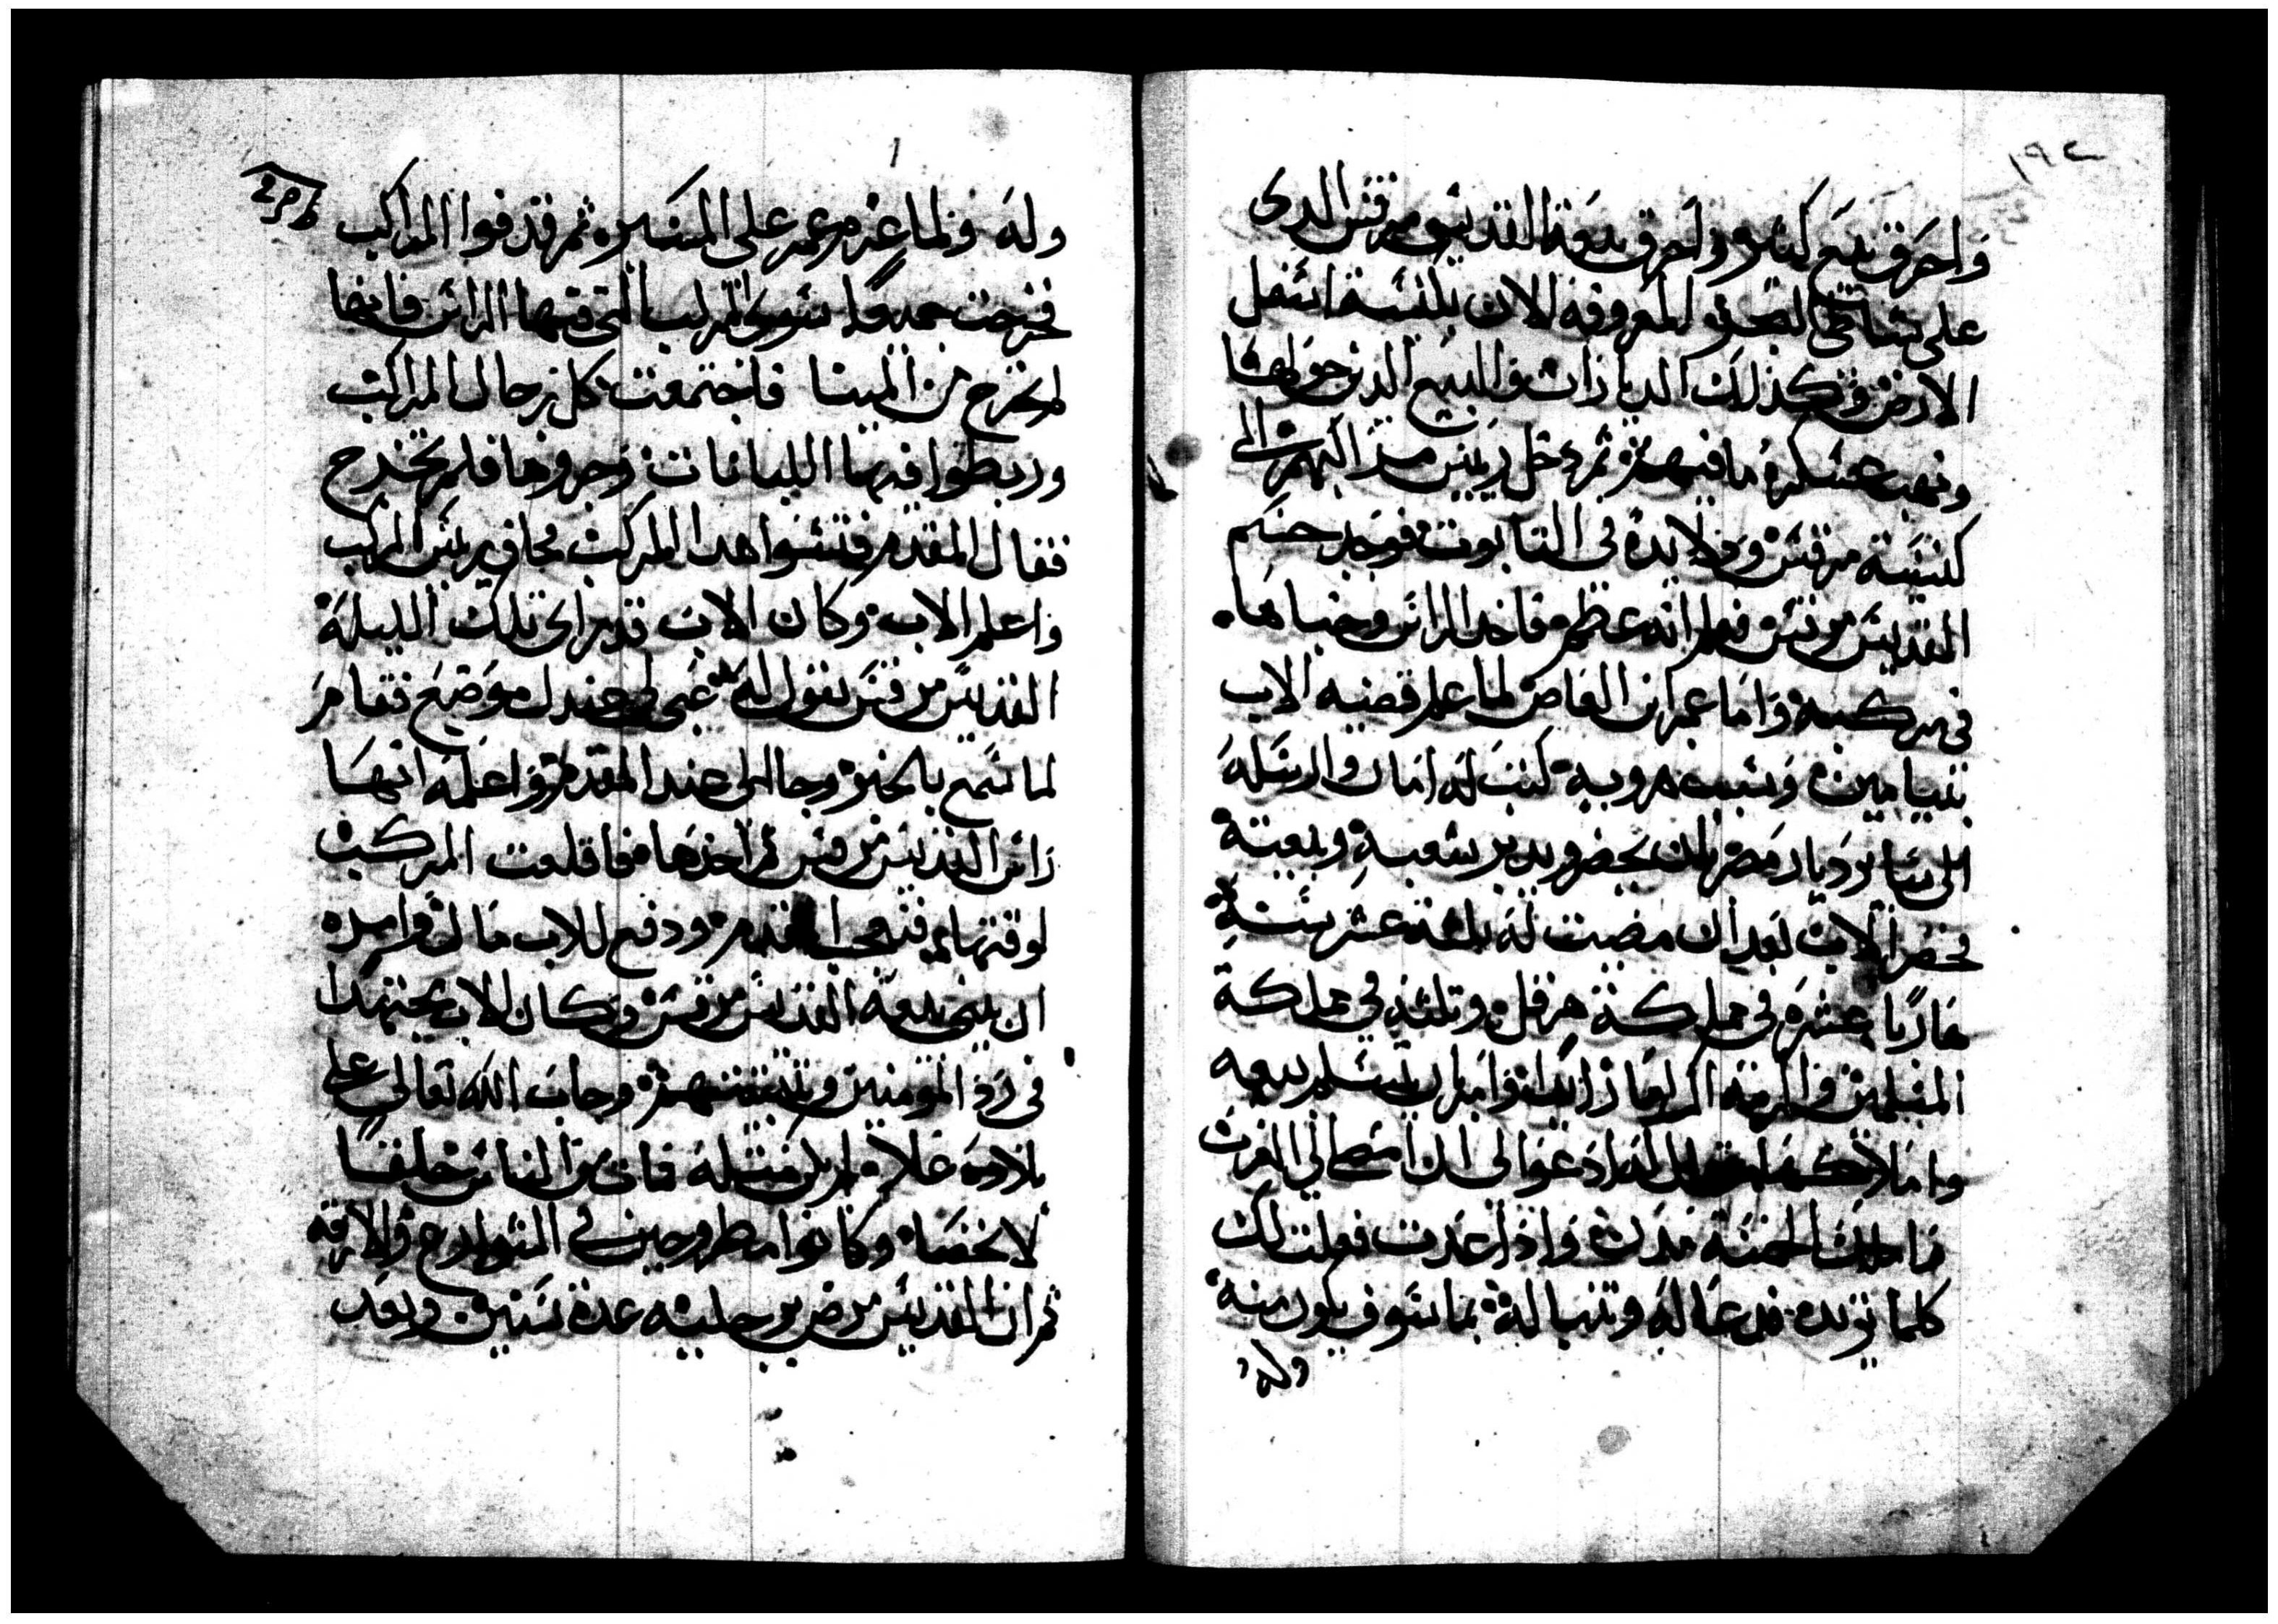 ١٩٢
واحرق بيع كتيره واحرق بيعة القديس مرقس الدى
على شاطى البحر المعروفه الان بلنيسة اسفل
الارض وكذلك الديارات والبيع الدين حولها
ونهب عسكره ما فيهم ثم دخل ريس من البهم الى
كنيسة مرقس ويده في التابوت فوجد جسم
القديس مرقس فعلم انه عظم فاخد الراس وخباها
في مركبه واما عمر ابن العاص لما علم قضيه الاب
بنيامين وسبب هروبه كتب له امان وارسله
الى ساير ديار مصر بان يحضر ويدبر شعبه وبيعته
فحضر الاب بعد ان مضت له تلتة عشر سنة
هاربا عشره في مملكة هرقل وتلته في مملكة
المسلمين واكرمه اكراما زايدا وامر ان يتسلم بيعه
واملاكها له ادعوا لى ان امضى الى الغرب
واملك الخمسة مدن واذا عدت فعلت لك
كلما تريده فدعا له وتنبا له بما سوف يكون منه
وله
وله ولما عزم عمر على المسير ثم قدفوا المراكب
فخرجت جميعا سوى المركب التى فيها الراس فانها
لم تخرج من المينا فاجتمعت كل رجال المراكب
وربطوا فيها اللبانات وجروها فلم تخرج
فقال المقدم فتشوا هدا المركب فخاف ريس المركب
واعلم الاب وكان الاب قد راى تلك الليلة
القديس مرقس يقول له عبى لى عندك موضع فقام
لما سمع بالخبر وجا الى عند المقدم واعلمه انها
راس القديس مرقس ثم اخدها فاقلعت المركب
لوقتها فتعجب المقدم ودفع للاب مال وامره
ان يبنى بيعة القديس مرقس وكان الاب مجتهدا
في رد المومنين وتثبيتهم وجاب الله تعالى على
بلاده غلاء لم يكن مثله فمات من الناس خليقا
لا تحصا وكانوا مطروحين في الشوارع والازقه
ثم ان القديس مرض بوجع رجليه عدة سنين وبعد